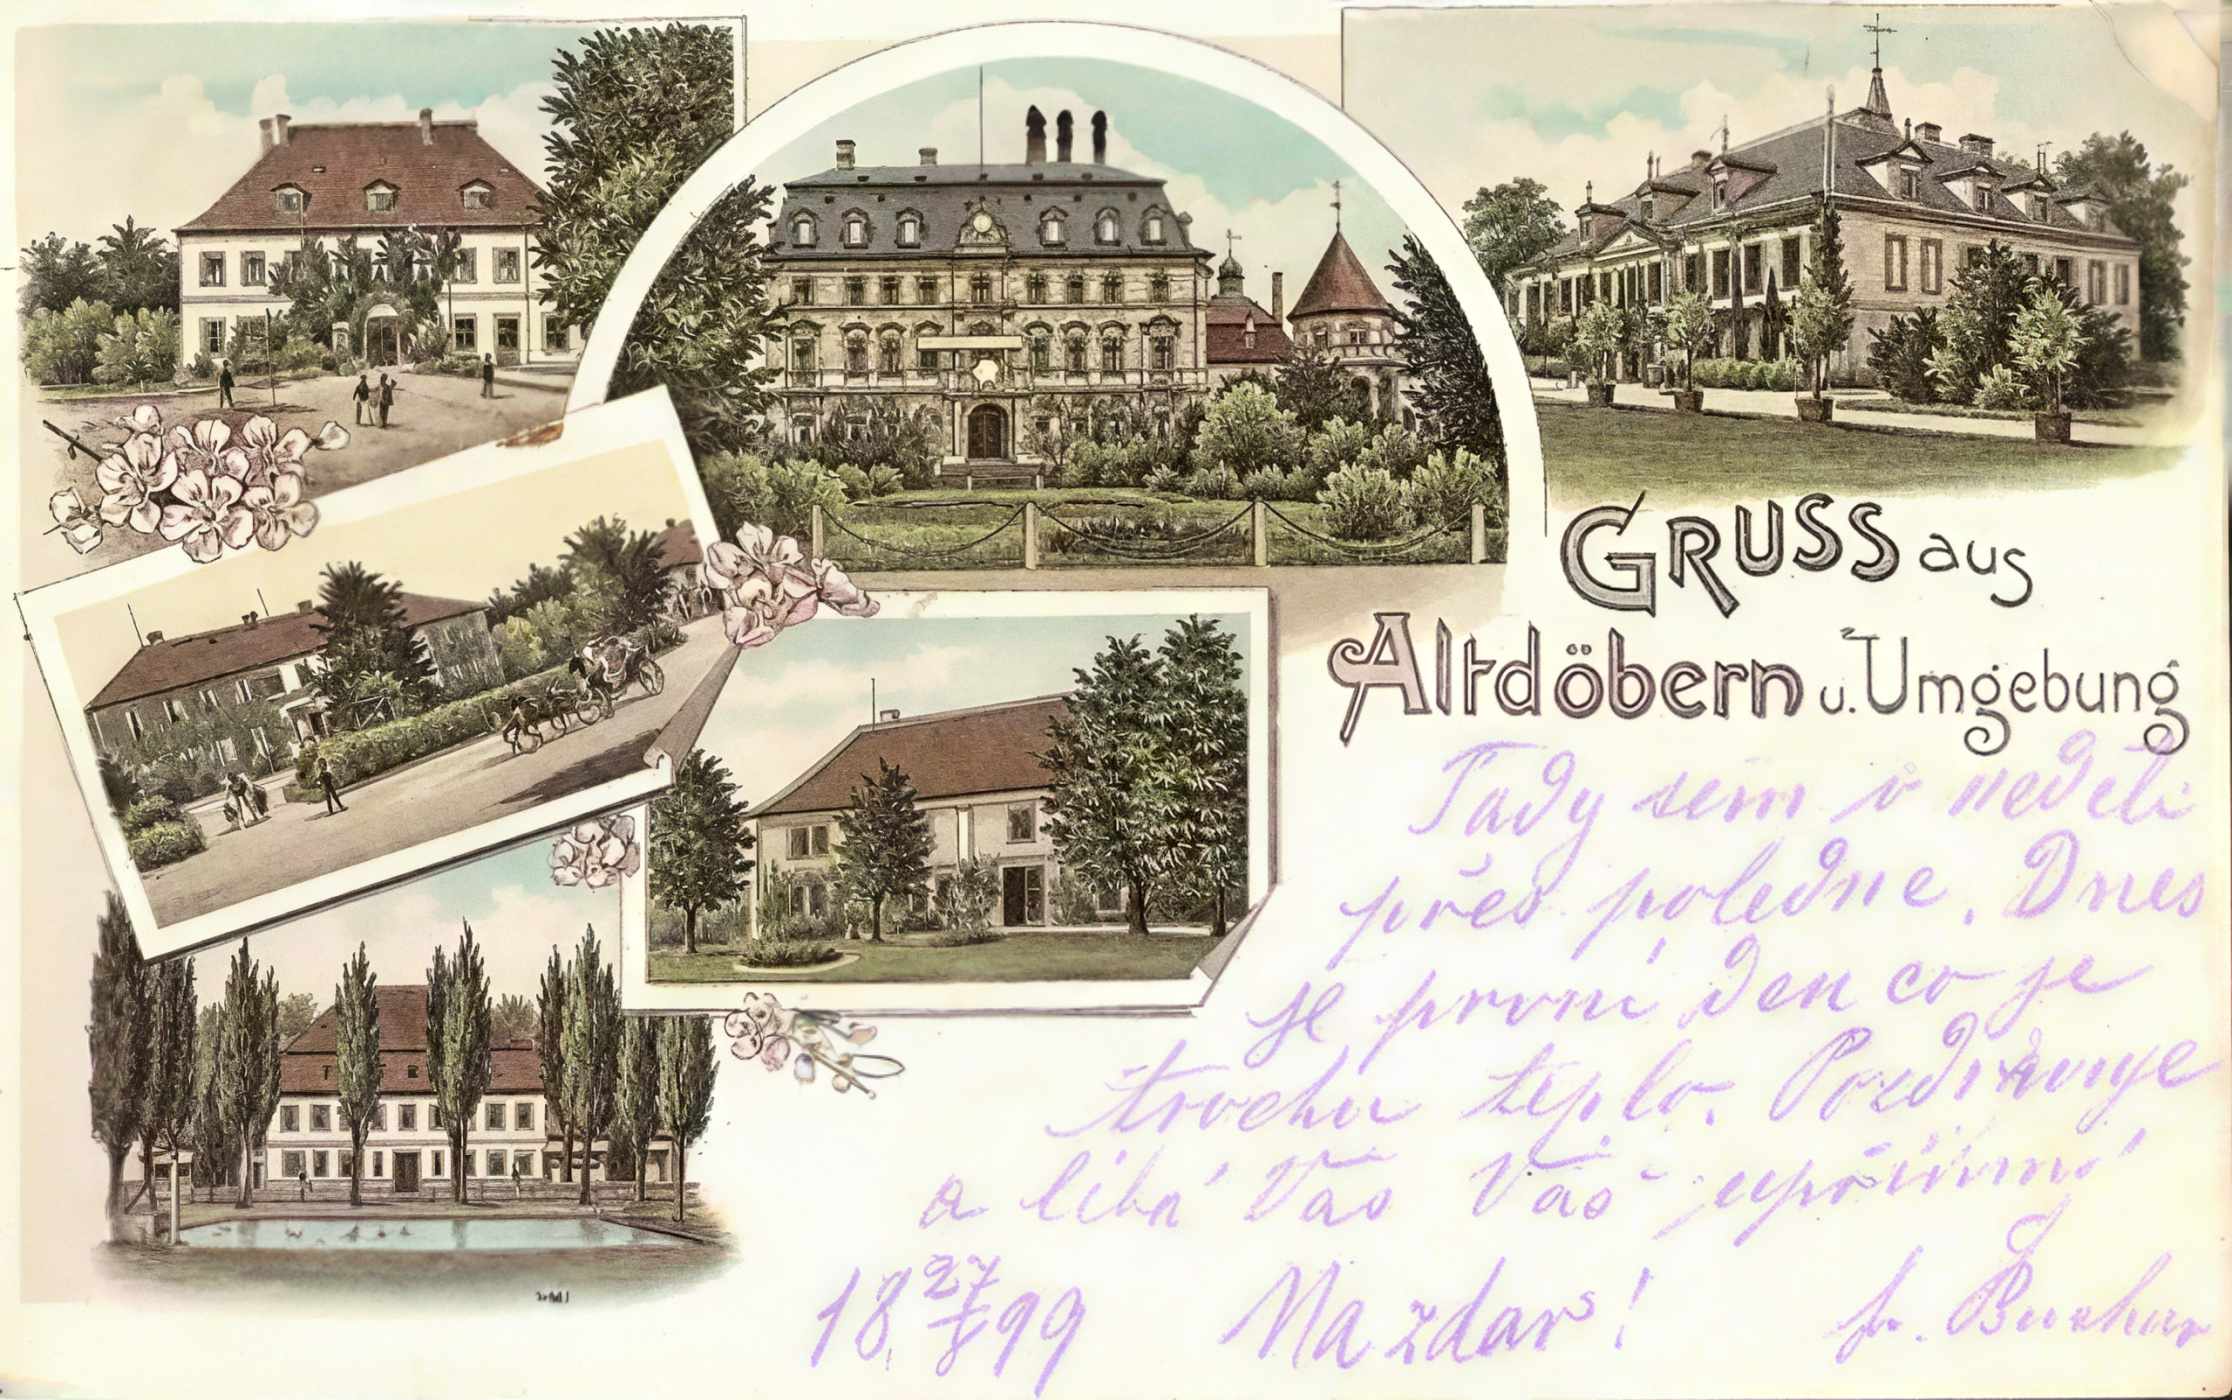 GRUSS aus
Altdöbern u. Umgebung
Tady sem v neděli
přes poledne. Dnes
je první den co je
trochu teplo. Pozdravuje
a líbá Vás Váš upřímný
18 27/5 99 Na zdar! fr. Buchar